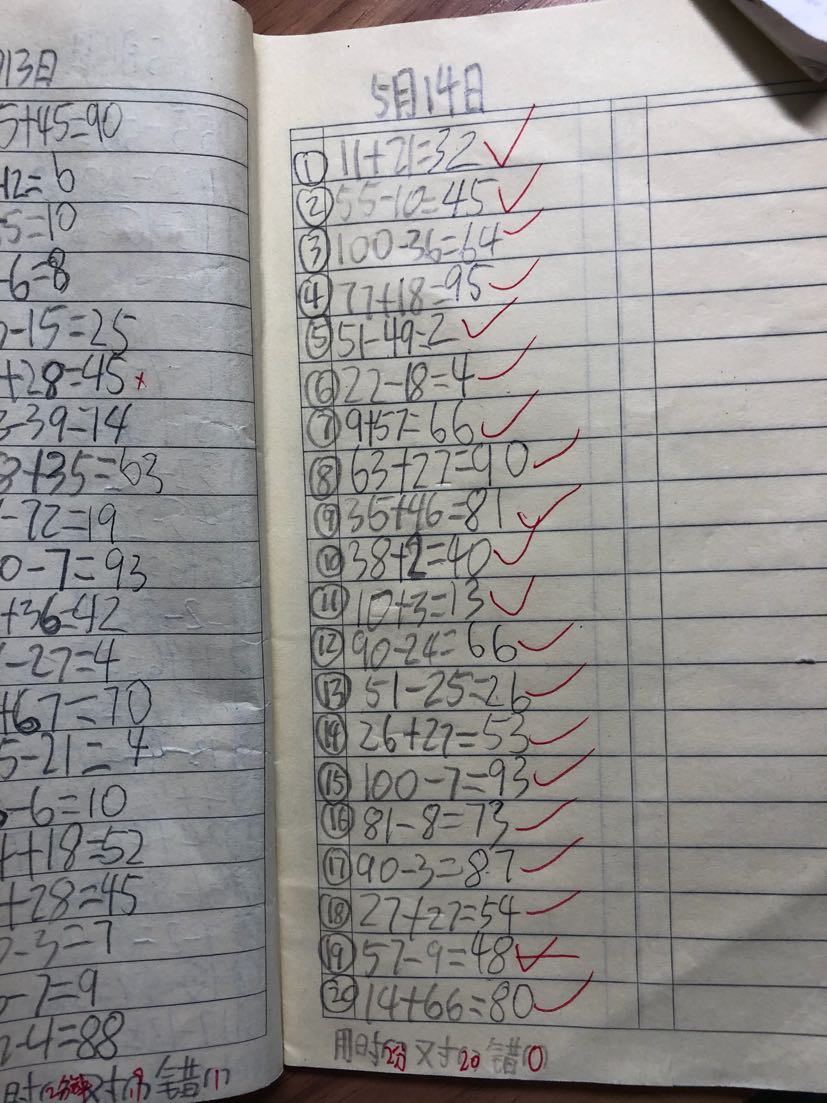 13日
5+45=90
12=6
5=10
-6=8
-15=25
+28=45
-39=14
3+35=63
-72=19
0-7=93
+36=42
-27=4
+67=70
5-21=4
-6=10
+18=52
+28=45
-3=7
-7=9
-4=88
用时(2分钟)对(19)错(1)
5月14日
①11+21=32
②55-10=45
③100-36=64
④77+18=95
⑤51-49=2
⑥22-18=4
⑦9+57=66
⑧63+27=90
⑨35+46=81
⑩38+2=40
⑪10+3=13
⑫90-24=66
⑬51-25=26
⑭26+27=53
⑮100-7=93
⑯81-8=73
⑰90-3=87
⑱27+27=54
⑲57-9=48
⑳14+66=80
用时(2分)对(20)错(0)